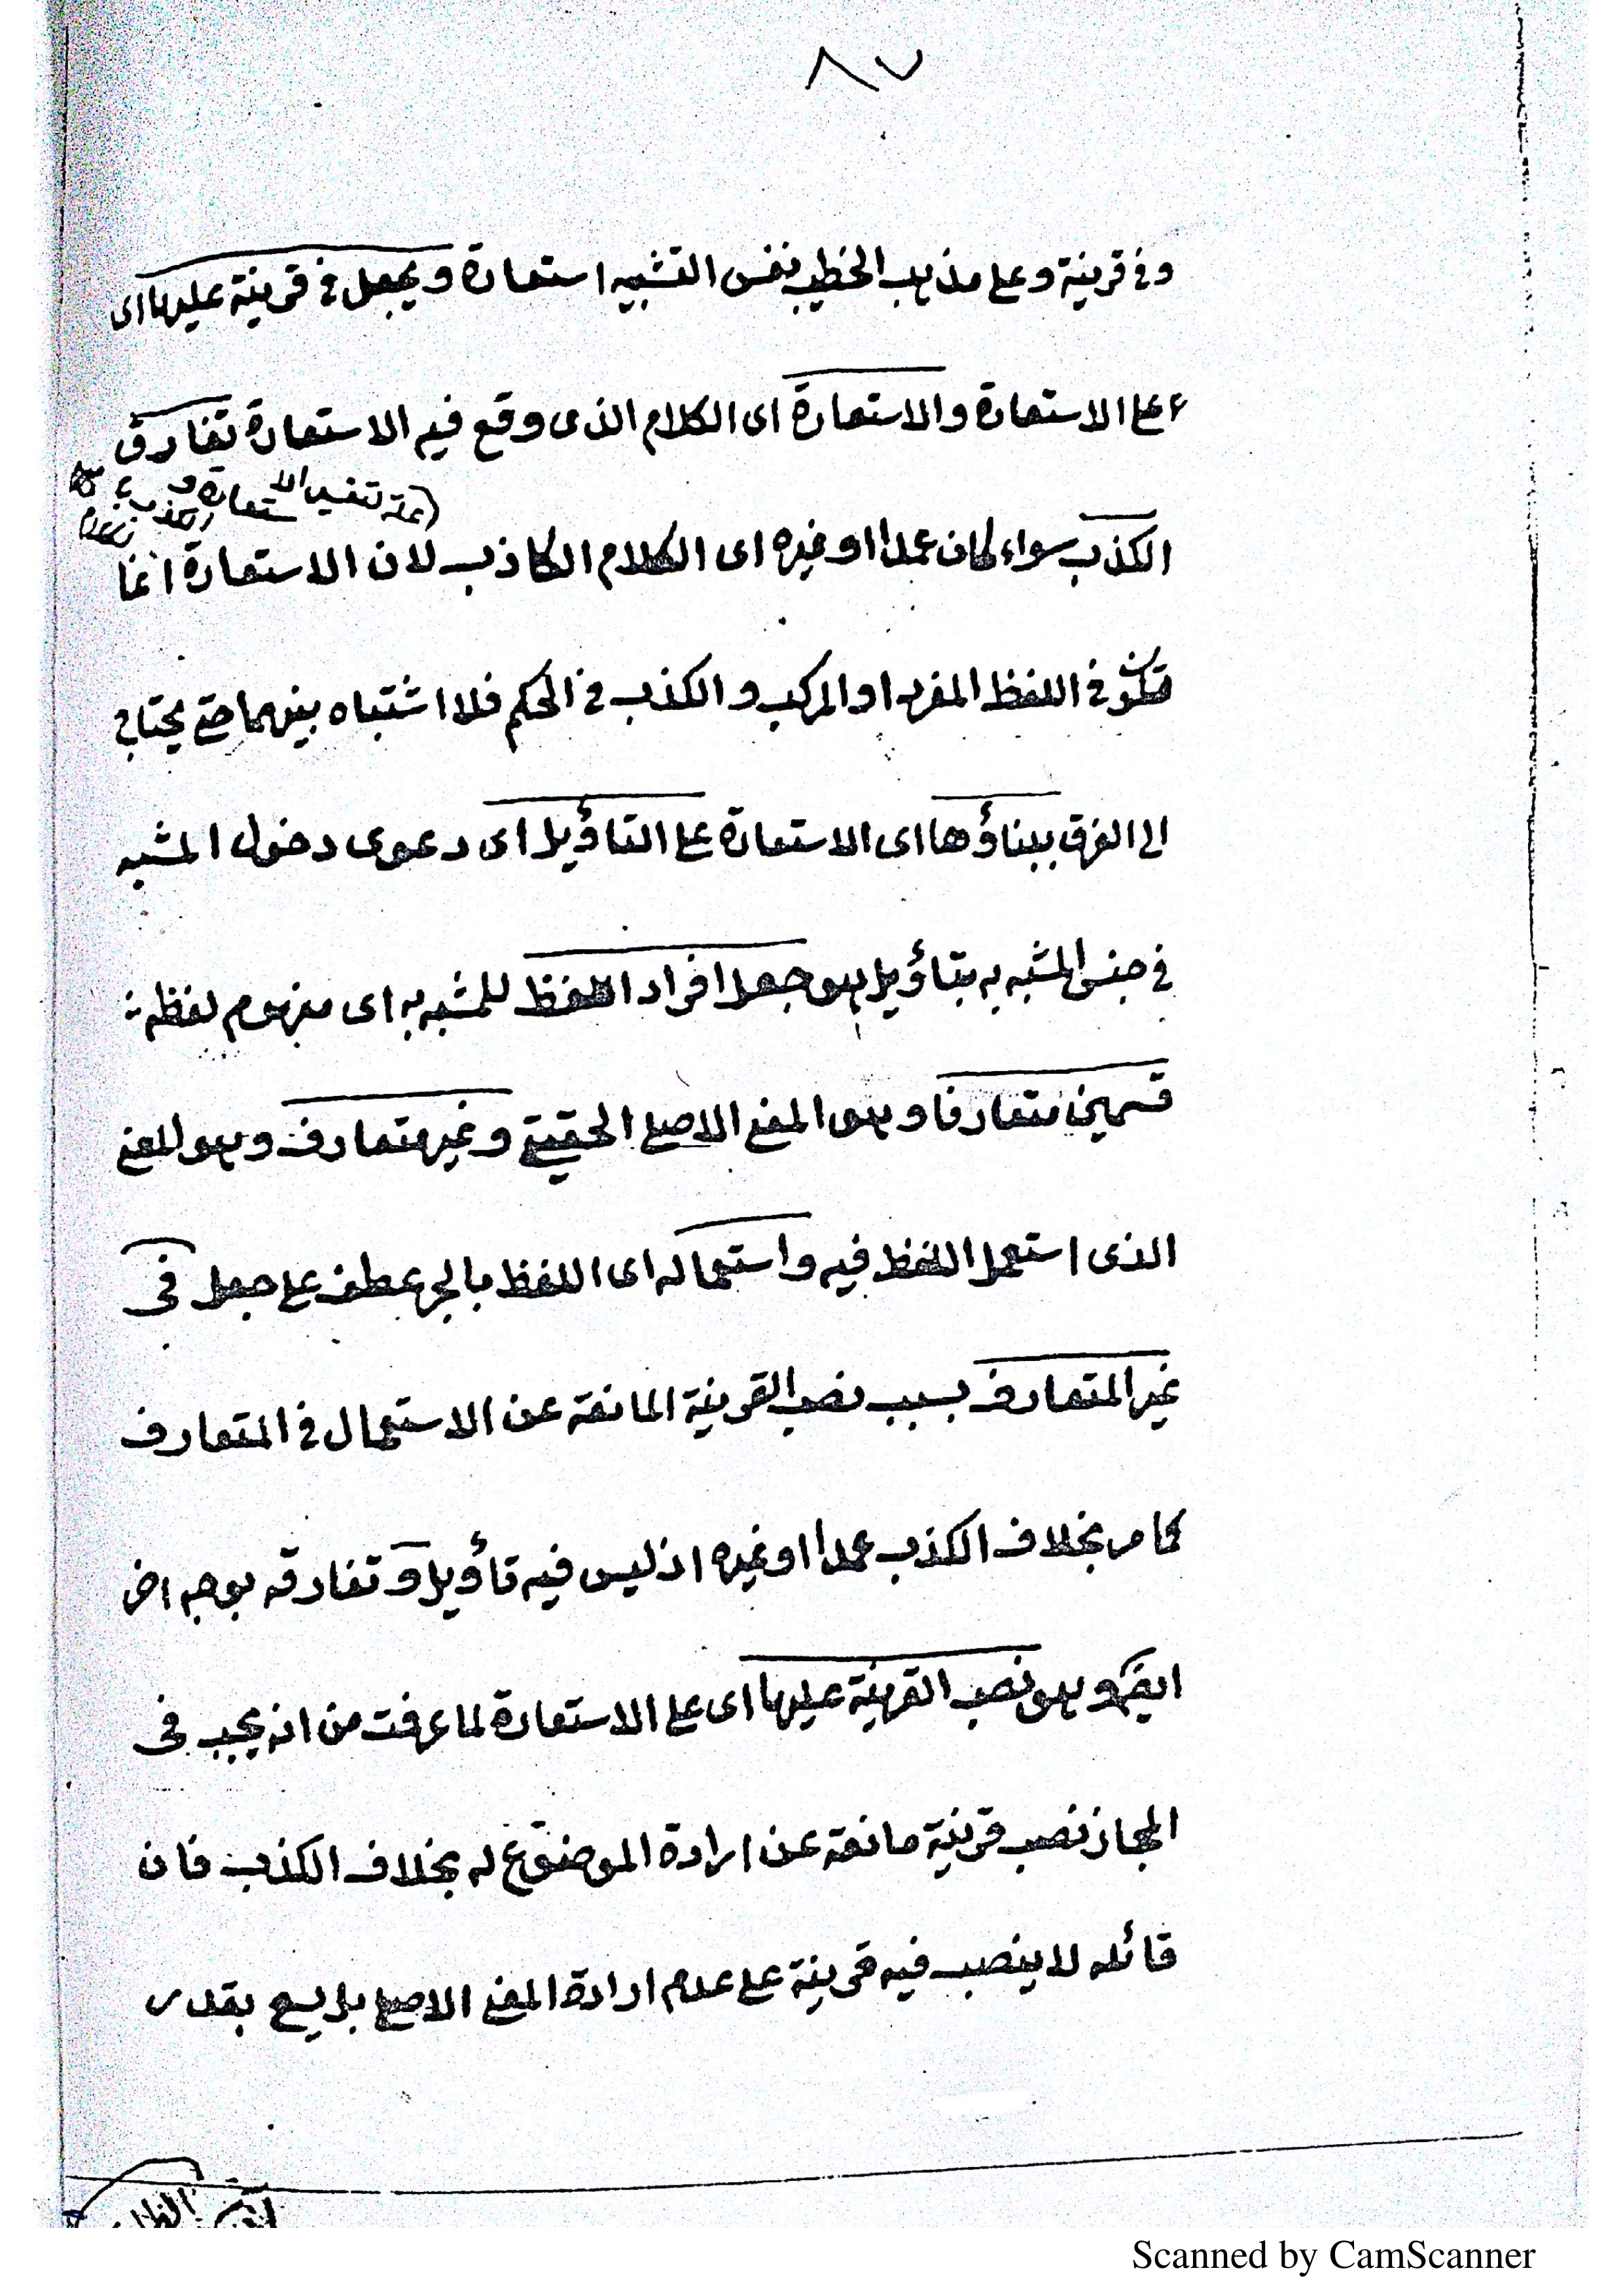 ٨٧
وفى قرينة وعلى مذهب الخطيب نفس التشبيه استعارة ويجعل فى قرينة عليها اى
على الاستعارة والاستعارة اى الكلام الذى وقع فيه الاستعارة تفارق
الكذب سواء كان عمدا او غيره اى الكلام الكاذب لان الاستعارة انما
تكون فى اللفظ المفرد او المركب والكذب فى الحكم فلا اشتباه بينهما حتى يحتاج
الى الفرق ببناؤها اى الاستعارة على التاؤيل اى دعوى دخول المشبه
فى جنس المشبه به بتاؤيل هو جعل افراد اللفظ للمشبه به اى مفهوم لفظه
قسمين متعارفا وهو المعنى الاصلى الحقيقى وغير متعارف وهو المعنى
الذى استعمل اللفظ فيه واستعماله اى اللفظ بالجر عطف على جعل فى
غير المتعارف بسبب نصب القرينة المانعة عن الاستعمال فى المتعارف
كما مر بخلاف الكذب عمدا او غيره اذ ليس فيه تاؤيل وتفارقه بوجه اخر
ايضا وهو نصب القرينة عليها اى على الاستعارة لما عرفت من انه يجب فى
المجاز نصب قرينة مانعة عن ارادة الموضوع له بخلاف الكذب فان
قائله لا ينصب فيه قرينة على عدم ارادة المعنى الاصلى بل يسعى بقدر
Scanned by CamScanner